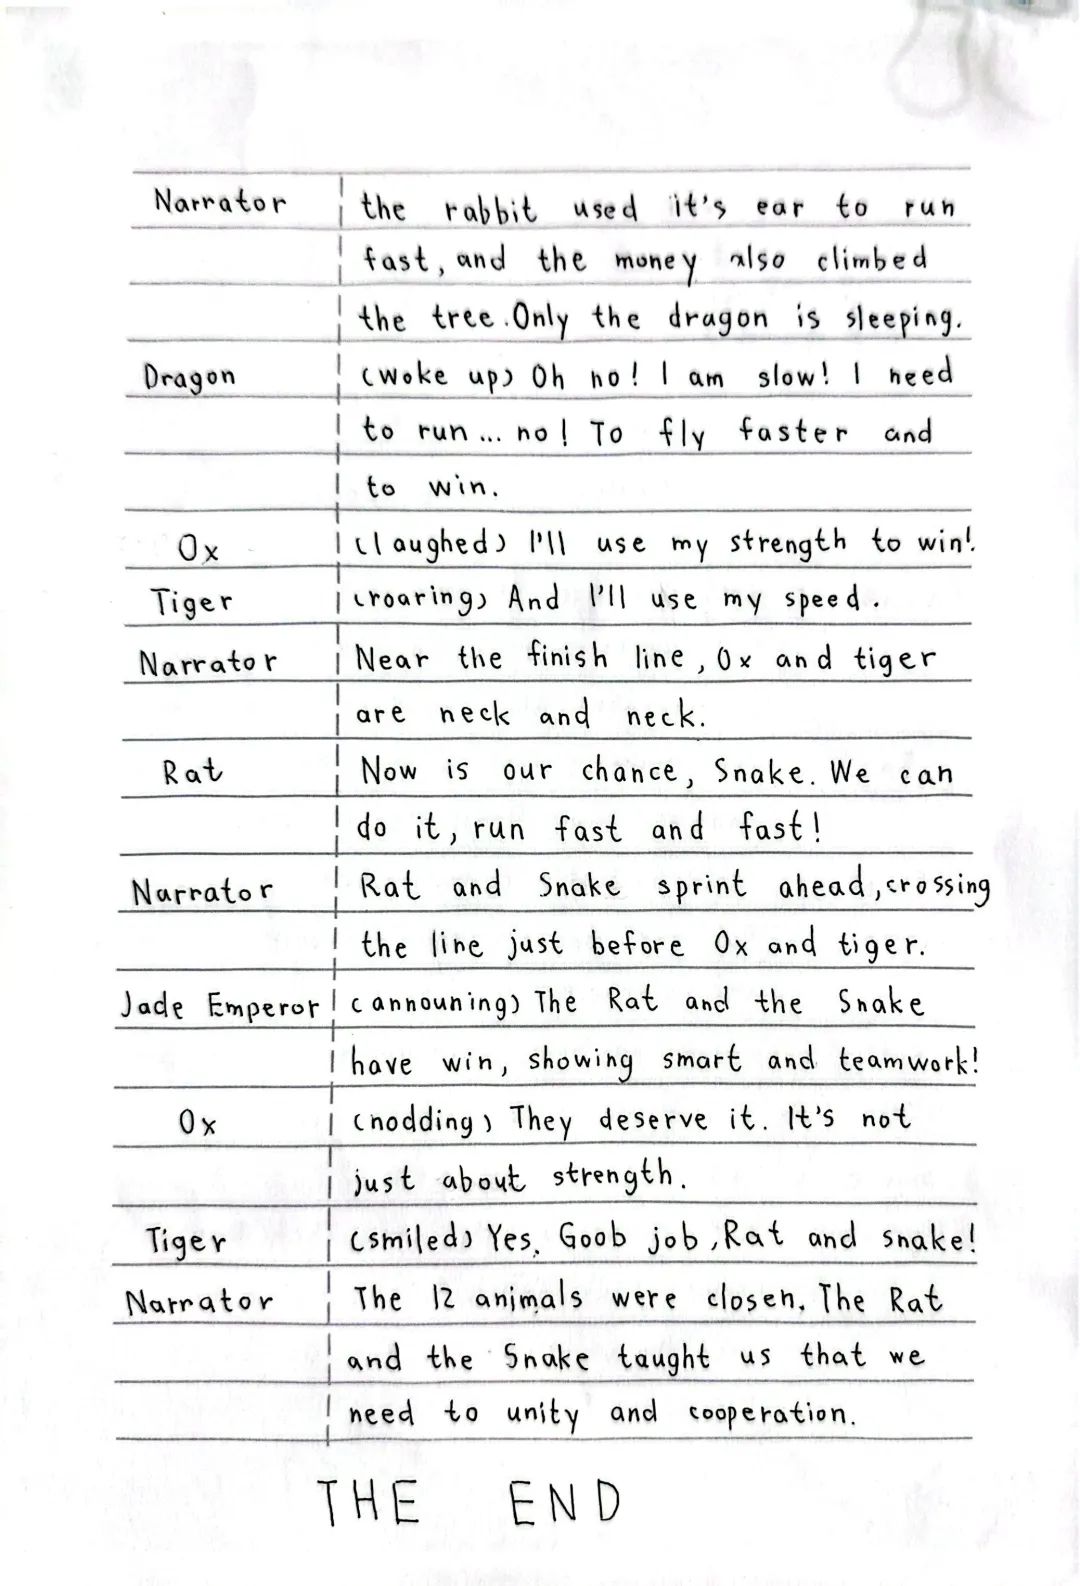 Narrator the rabbit used it's ear to run
fast, and the money also climbed
the tree. Only the dragon is sleeping.
Dragon (woke up) Oh no! I am slow! I need
to run... no! To fly faster and
to win.
Ox (laughed) I'll use my strength to win!
Tiger (roaring) And I'll use my speed.
Narrator Near the finish line, Ox and tiger
are neck and neck.
Rat Now is our chance, Snake. We can
do it, run fast and fast!
Narrator Rat and Snake sprint ahead, crossing
the line just before Ox and tiger.
Jade Emperor (announing) The Rat and the Snake
have win, showing smart and teamwork!
Ox (nodding) They deserve it. It's not
just about strength.
Tiger (smiled) Yes. Goob job, Rat and snake!
Narrator The 12 animals were closen. The Rat
and the Snake taught us that we
need to unity and cooperation.
THE END